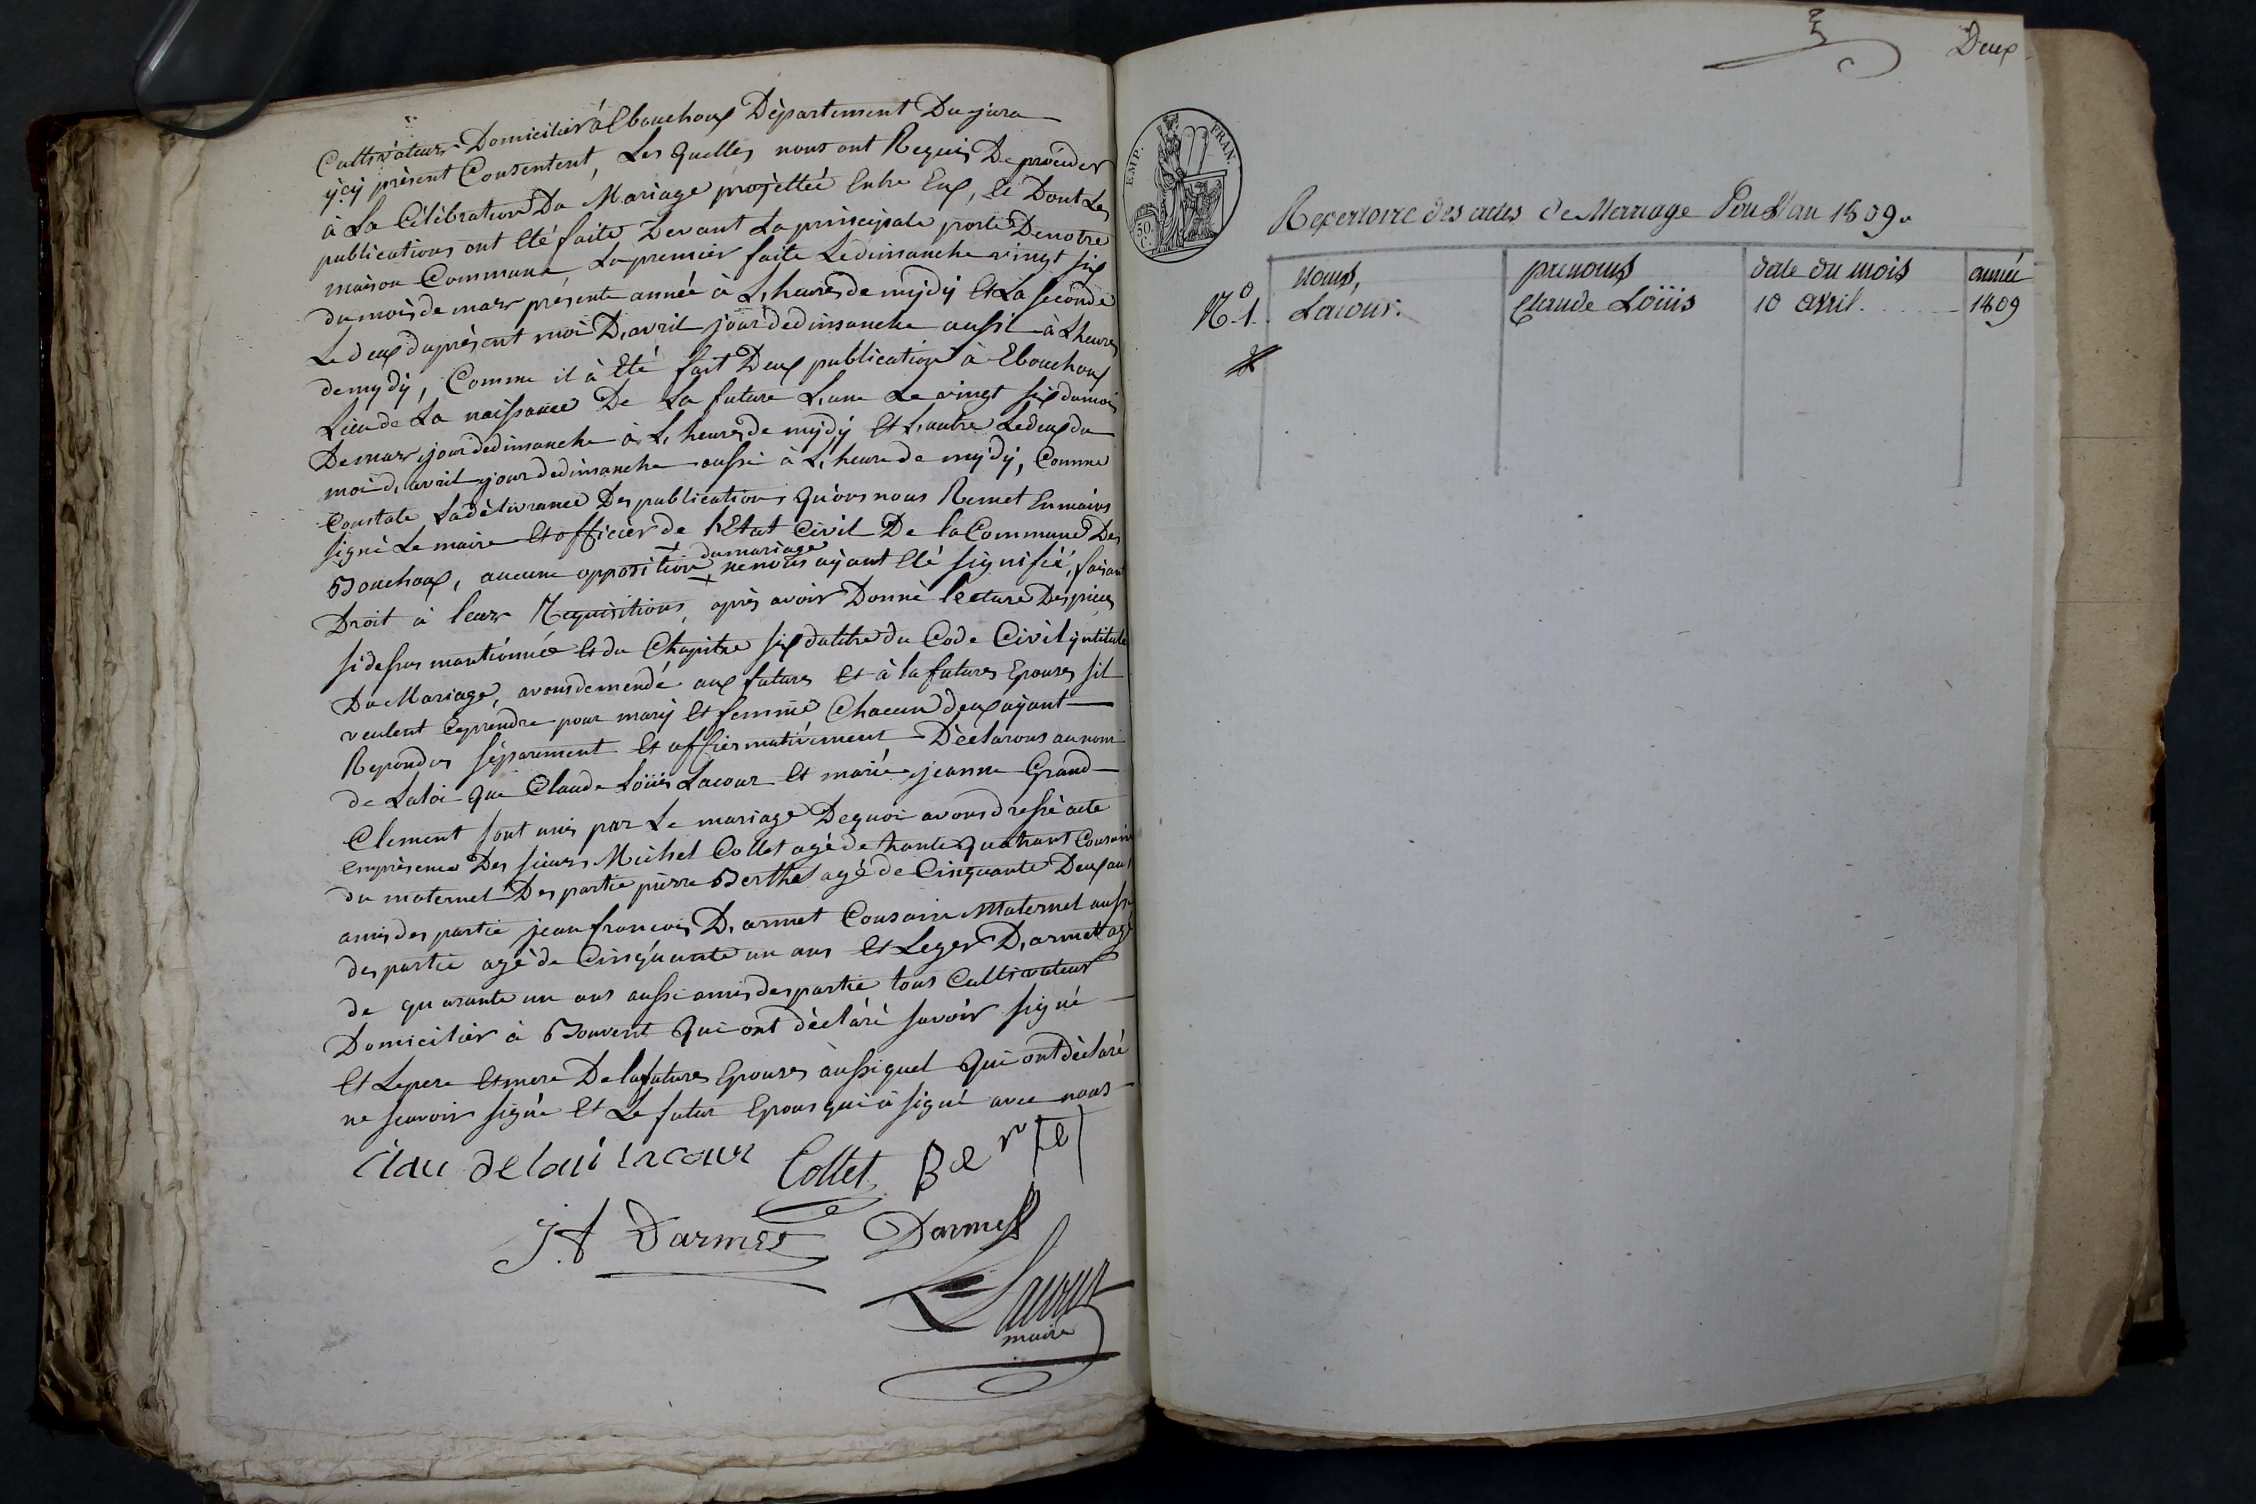 Cultivateurs Domiciliér à Ebouchoux Département Du jura
ÿcÿ prèsent Consentent, Les quelles nous ont Requis De procéder
à La Célébration Du Mariage projettée Entre Eux, Et Dont Les
publications ont Eté faite Devant La principale porte De notre
maison Commune La premier faite Le dimanche vingt six
du mois de mars présente année à L, heures de mÿdÿ Et La seconde
Le deux du prèsent moi D, avril jour de dimanche aussi à L heures
de mydÿ, Comme il à Eté fait Deux publication à Ebouchoux
Lieu de La naissance De La future L, une Le vingt six du mois
De mars jour de dimanche à L, heures de mÿdÿ Et L, autre Le deux du
moi d, avril jour de dimanche aussi à L, heure de mÿdÿ, Comme
Constate La dèlivrance Des publications qu'ons nous Remet En mains
signé Le maire Et officier de l'Etat Civil De la Commune Des
du mariage
Bouchoux, aucune opposition ne nous aÿant Eté signifié, faisant
Droit à leurs Requisitions, après avoir Donné lecture Des pieces
si dessus mantionnée Et du Chapitre six du titre du Code Civil ÿntitulé
Du Mariage, avons demendé aux futures Et à la futures Epouses sil
veulent Ce prendre pour marÿ Et femme Chacun d'eux aÿant
Repondus séparement Et affirmativement Dèclarons au nom
de La loi que Claude Loüis Lacour Et marie jeanne Grand
Clement sont unis par Le mariage De quoi avons dressé acte
en prèsence Des sieurs Michel Collet agé de trante quatr ant Cousain
du maternel Des partie pierre Berthet agé de Cinquante Deux ans
amis des partie jean francois D, armet Cousain Maternel aussi
des partie agé de Cinquante un ans Et Leger D, armet agé
de quarante un ans aussi amis des partie tous Cultivateur
Domiciliér à Bouvent Qui ont dèclaré savoir signé
Et Le pere Et mere De la futures Epouses aussi quel Qui ont dèclaré
ne scavoir signé Et Le futur Epous qui à signé avec nous
Clau de loui lacour Collet
J f Darmet Darmet
Lacour
maire
Deux
EMP. FRAN.
50
C.
Repertoire des actes de Mariage Pour L'an 1809.
Noms, prenoms date du mois année
No 1. Lacour. Claude Loüis 10 avril. 1809